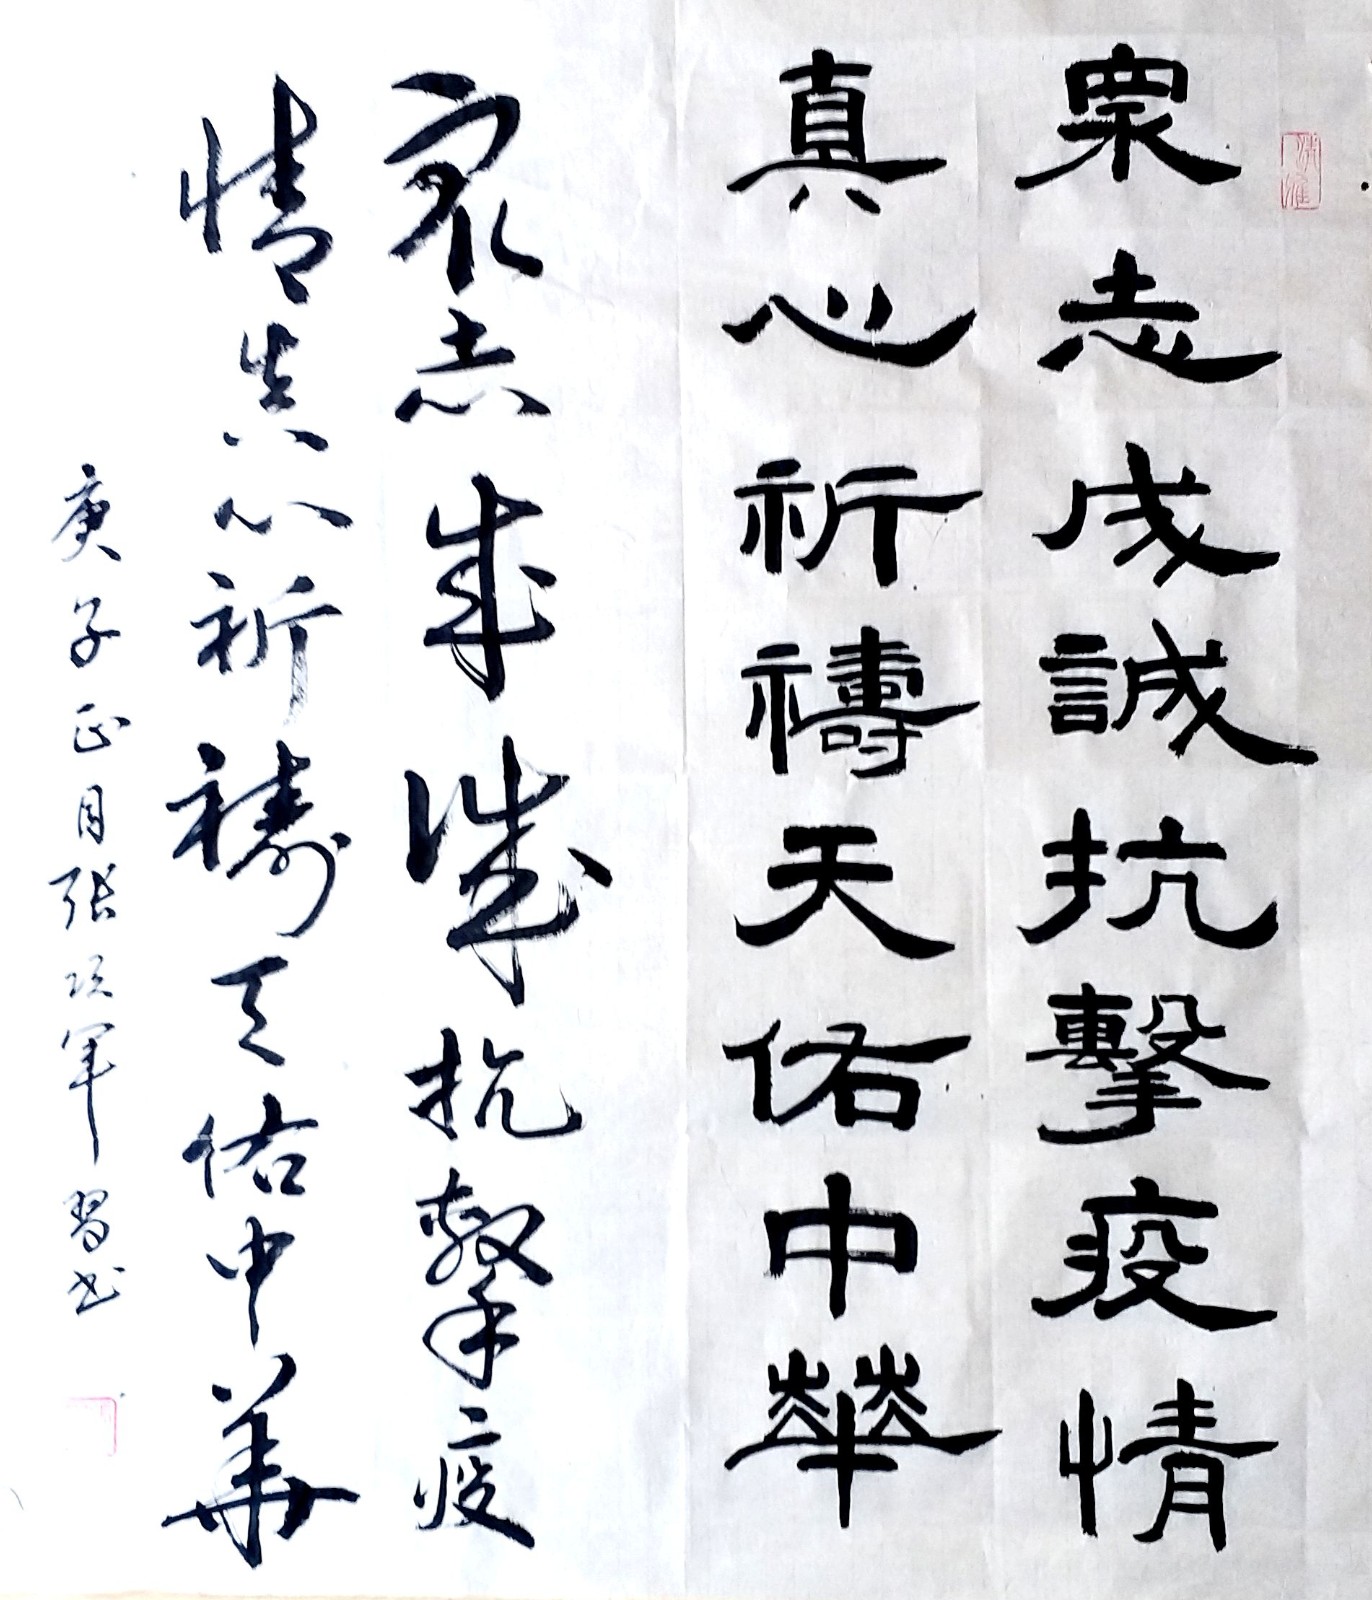 眾志成誠抗擊疫情
真心祈禱天佑中華
眾志成诚抗擊疫
情真心祈禱天佑中華
庚子正月張項軍習书